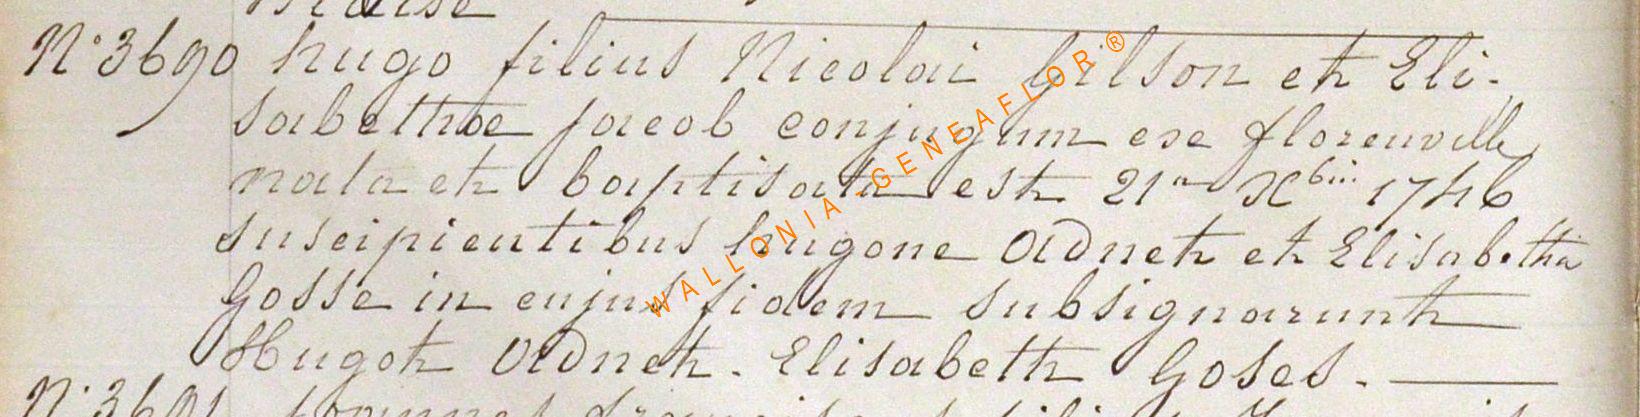 N° 3690 hugo filius Nicolai Gilson et Eli-
sabethae jacob conjugum exe florenville
nata et baptisata est 21a Xbis 1746
suscipientibus hugone Adnet et Elisabetha
Gosse in cujus fidem subsignarunt
Hugot Adnet. Elisabeth Goses.
WALLONIA-GENEAFLOR®